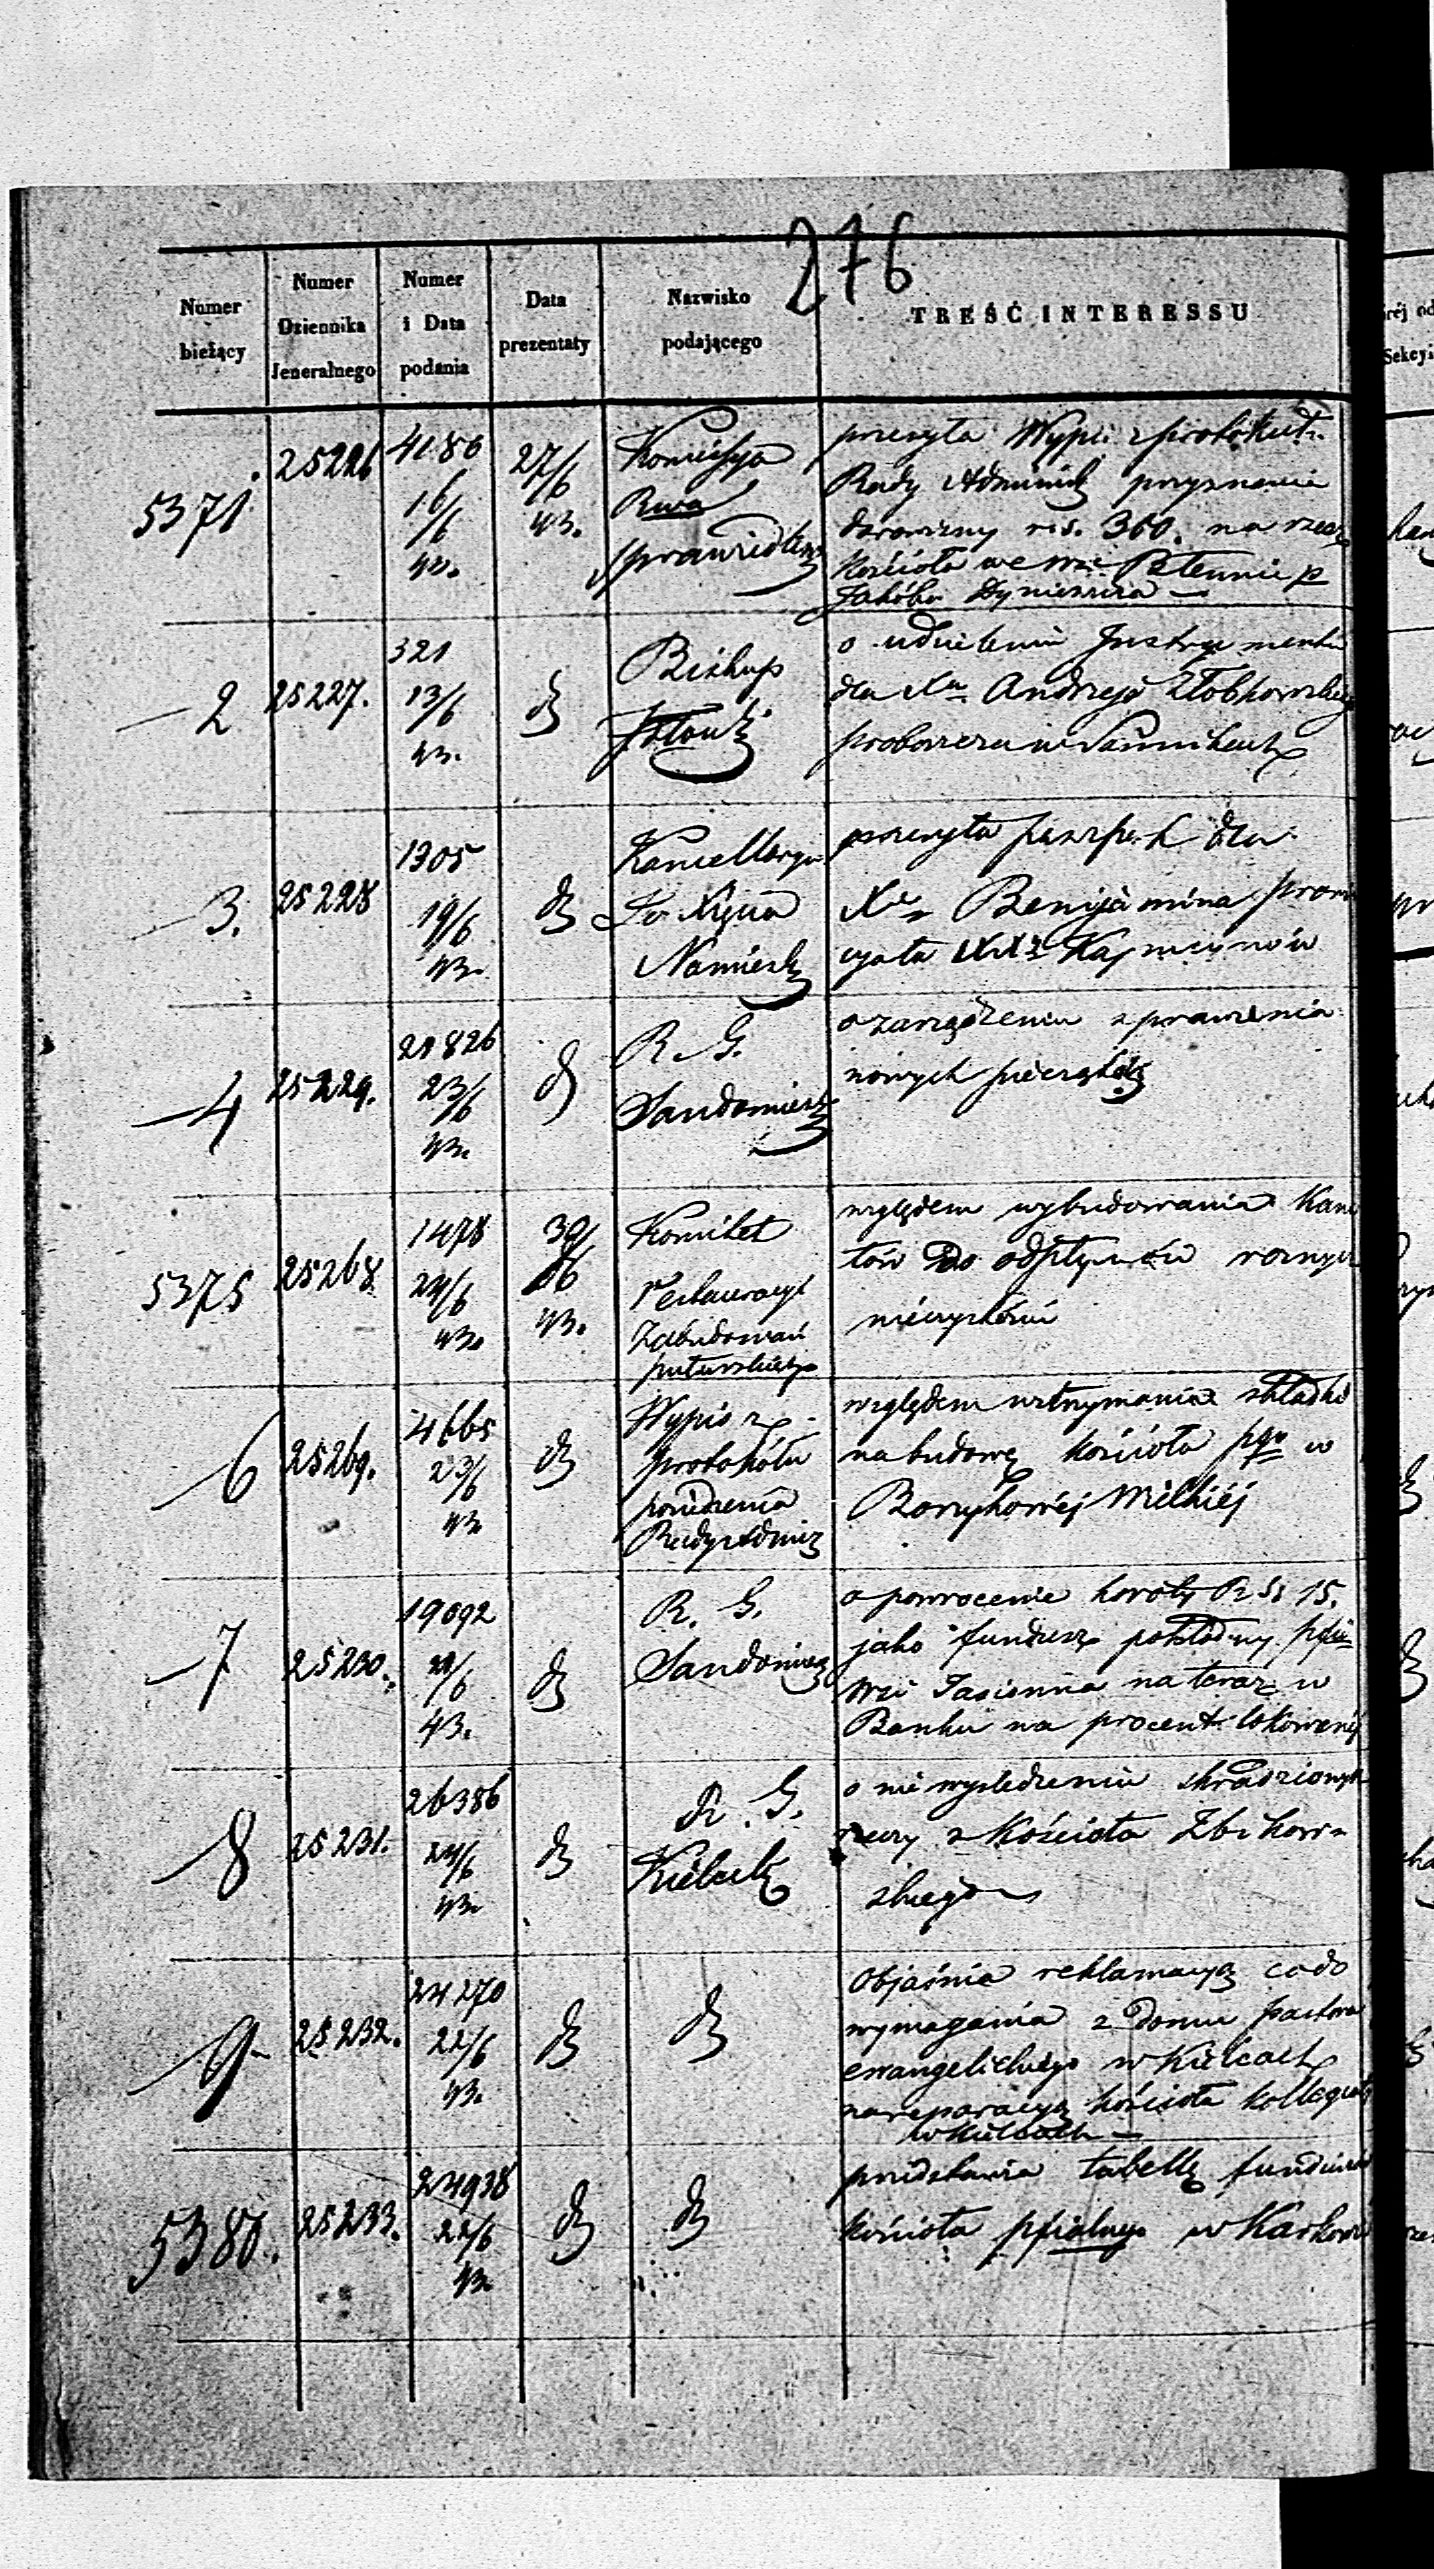 276
Numer bieżący
Numer Dziennika Jeneralnego
Numer i Data podania
Data prezentaty
Nazwisko podającego
TREŚĆ INTERESSU
5371
25226
4180
16/6
43.
27/6
43.
Komissya
Rwa
Sprawiedliw
przesyła Wypis z protokułu
Rady Administ przyznanie
darowizny rs. 360. na rzecz
Kościoła we wsi p
Jakóba
2
25227.
321
13/6
43.
d
Biskup
o udzielenie Instrumentu
dla Xa Andrzeja
proboszcza w Sannikach
3.
25228
1305
19/6
43.
d
Kancellarya
Xięcia
Namiest
przesyła paszport dla
Xa Benijamina prow
cyała XX Kapucynów
4
25229.
21826
23/6
43.
d
R. G.
Sandomiers
o zarządzenie sprawienia
nowych pieczątek
5375
25268
1478
24/6
43.
30/6
43.
Komitet
restauracyi
Zabudowań
pułtuskich
względem wybudowania Kana
łów do odpływów rożnych
nieczystości
6
25269.
4665
23/6
43
d
Wypis z
protokółu
posiedzenia
Rady Admi
względem wstrzymania składki
na budowę kościoła pgo w
Borzykowéj Wielkiéj
7
25230.
19092
21/6
43.
d
R. G.
Sandomier
o powrócenie kwoty R Sr 15.
jako fundusz pokładny
wsi Jasienna na teraz w
Banku na procent lokowanéj
8
25231.
26386
24/6
43.
d
R. G.
Kielecki
o nie wyśledzeniu skradzionych
rzeczy z Kościoła Zbikow-
skiego
9
25232.
24270
22/6
43.
d
d
Objaśnia reklamacyą co do
wymagania z domu pastora
ewangelickiego w Kielcach
na reparacyą kościoła kollegiat
w Kielcach
5380.
25233.
24938
22/6
43
d
d
przedstawia tabellę funduszów
kościoła pfialnego w